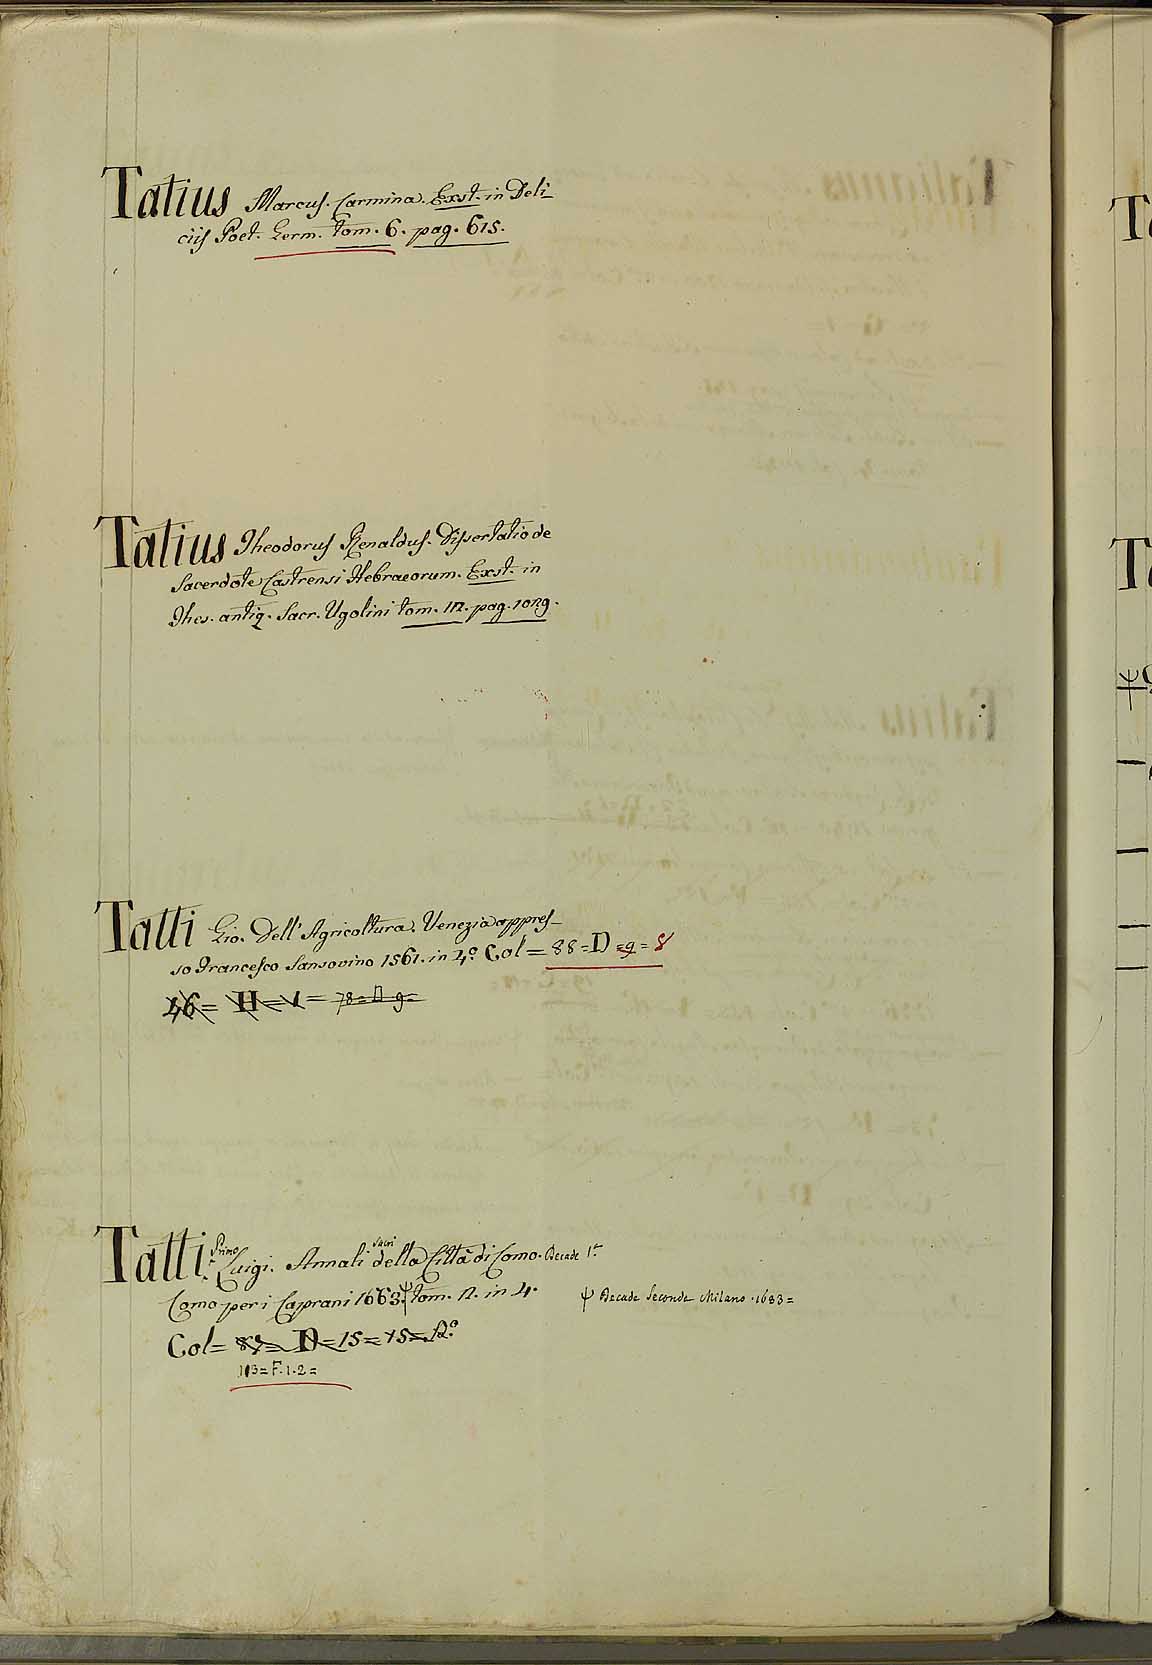 Tatius Marcus. Carmina. Exst. in Deli_
ciis Poet. Germ. tom. 6. pag. 615.
Tatius Theodorus Renaldus. Dissertatio de
Sacerdote Castrensi Hebraeorum. Exst. in
Thes. antiq. Sacr. Ugolini tom. 12. pag. 1029.
Tatti Gio. Dell' Agricoltura. Venezia appres_
so Francesco Sansovino 1561. in 4.º Col = 88 = D = 9 = 8
46 = H = 1 = 78 = D 9 =
Tatti. Primo Luigi. Annali sacri della Città di Como. Decade 1.ª
Como per i Caprani 1663. Ψ tom. 2. in 4.
Ψ Decade Seconda Milano. 1683 =
Col = 87 = D = 15 = 15 = 12º
113 = F. 1. 2 =
Ta
Ta